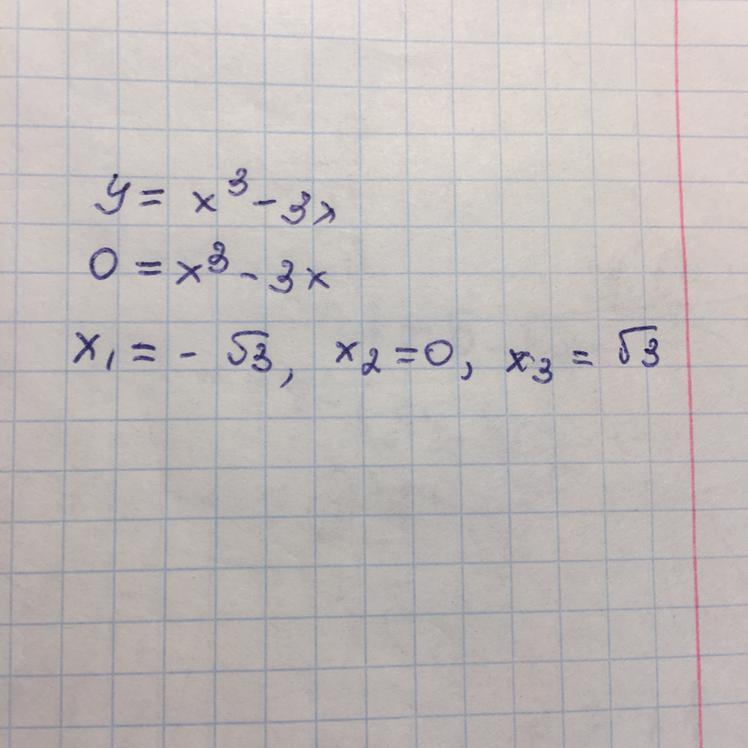 y = x³ - 3x
0 = x³ - 3x
x₁ = - √3, x₂ = 0, x₃ = √3